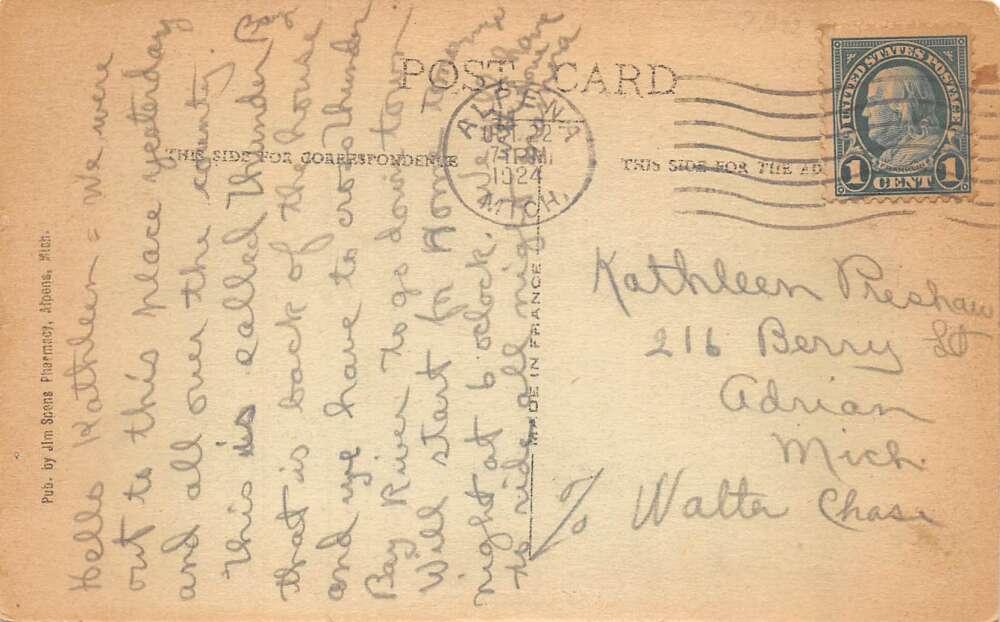 POST CARD
THIS SIDE FOR CORRESPONDENCE
THIS SIDE FOR THE AD
UNITED STATES POSTAGE
1 CENT 1
ALPENA
OCT 22
7 PM
1924
MICH.
Pub. by Jim Spens Pharmacy, Alpena, Mich.
MADE IN FRANCE
Hello Kathleen = we were
out to this place yesterday
and all over the county.
This is called Thunder Bay
that is back of the house
and we have to cross Thunder
Bay River to go down town
Will start for Home
night at 6 oclock. We
to ride all night
Kathleen Preshaw
216 Berry St
Adrian
Mich.
c/o Walter Chase